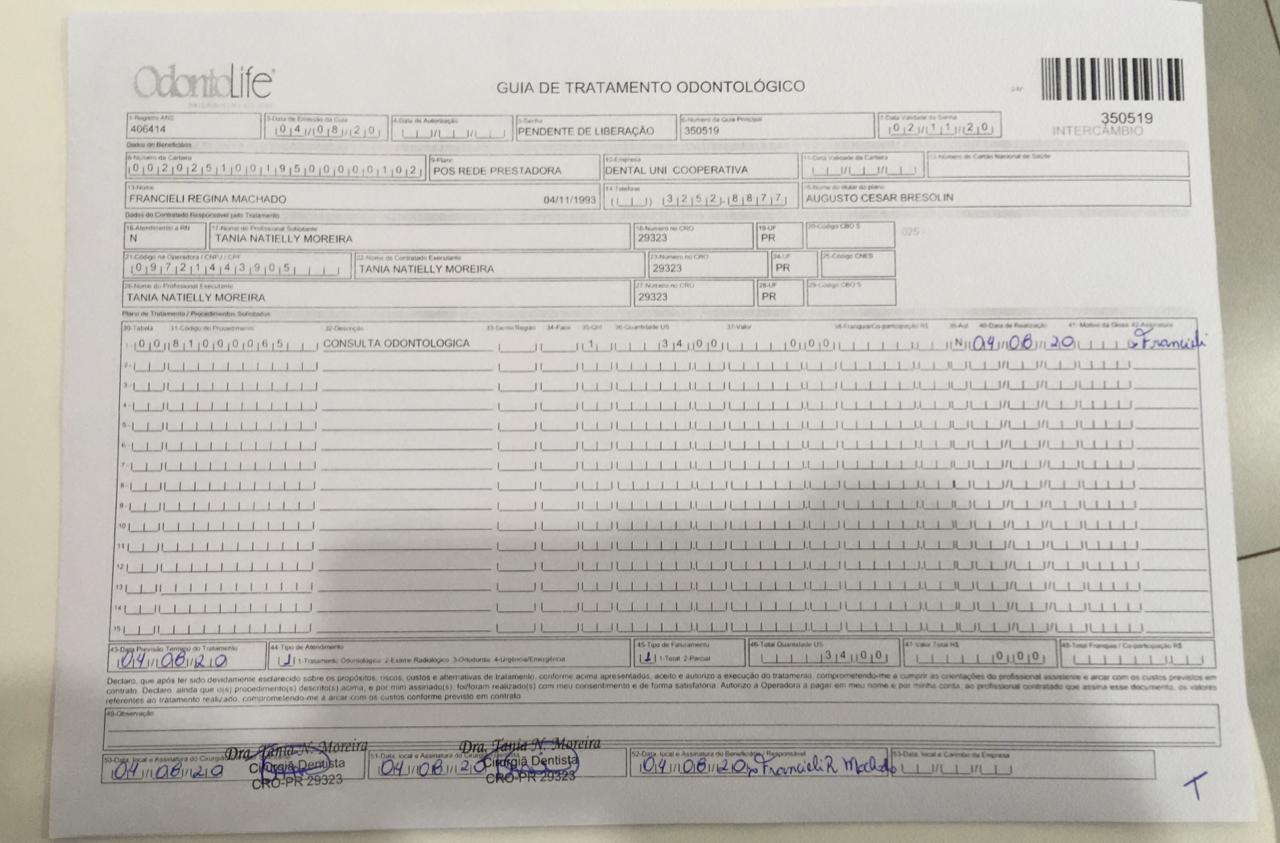 OdontoLife
GUIA DE TRATAMENTO ODONTOLÓGICO
350519
INTERCÂMBIO
1-Registro ANS 3-Data de Emissão da Guia 4-Data de Autorização 5-Senha 6-Número da Guia Principal 7-Data Validade da Senha
406414 04/08/20 PENDENTE DE LIBERAÇÃO 350519 02/11/20
Dados do Beneficiário
8-Número da Carteira 9-Plano 10-Empresa 11-Data Validade da Carteira 12-Número do Cartão Nacional de Saúde
00202510019500000102 POS REDE PRESTADORA DENTAL UNI COOPERATIVA
13-Nome 14-Telefone 15-Nome do titular do plano
FRANCIELI REGINA MACHADO 04/11/1993 3252-8877 AUGUSTO CESAR BRESOLIN
Dados do Contratado Responsável pelo Tratamento
16-Atendimento a RN 17-Nome do Profissional Solicitante 18-Número no CRO 19-UF 20-Código CBO S
N TANIA NATIELLY MOREIRA 29323 PR 025 -
21-Código na Operadora / CNPJ / CPF 22-Nome do Contratado Executante 23-Número no CRO 24-UF 25-Código CNES
09721443905 TANIA NATIELLY MOREIRA 29323 PR
26-Nome do Profissional Executante 27-Número no CRO 28-UF 29-Código CBO S
TANIA NATIELLY MOREIRA 29323 PR
Plano de Tratamento / Procedimentos Solicitados
30-Tabela 31-Código do Procedimento 32-Descrição 33-Dente/Região 34-Face 35-Qtd 36-Quantidade US 37-Valor 38-Franquia/Co-participação R$ 39-Aut 40-Data de Realização 41-Motivo da Glosa 42-Assinatura
1- 00 81000065 CONSULTA ODONTOLOGICA 1 34 00 0 00 N 04/08/20 Francieli
2-
3-
4-
5-
6-
7-
8-
9-
10
11
12
13
14
15
43-Data Previsão Término do Tratamento 44-Tipo de Atendimento 45-Tipo de Faturamento 46-Total Quantidade US 47-Valor Total R$ 48-Total Franquia / Co-participação R$
04/08/20 1 1-Tratamento Odontológico 2-Exame Radiológico 3-Ortodontia 4-Urgência/Emergência 1 1-Total 2-Parcial 34 00 0 00
Declaro, que após ter sido devidamente esclarecido sobre os propósitos, riscos, custos e alternativas de tratamento, conforme acima apresentados, aceito e autorizo a execução do tratamento, comprometendo-me a cumprir as orientações do profissional assistente e arcar com os custos previstos em
contrato. Declaro, ainda que o(s) procedimento(s) descrito(s) acima, e por mim assinado(s), foi/foram realizado(s) com meu consentimento e de forma satisfatória. Autorizo a Operadora a pagar em meu nome e por minha conta, ao profissional contratado que assina esse documento, os valores
referentes ao tratamento realizado, comprometendo-me a arcar com os custos conforme previsto em contrato.
49-Observação
Dra. Tania N. Moreira Dra. Tania N. Moreira
50-Data, local e Assinatura do Cirurgião 51-Data, local e Assinatura do Cirurgião 52-Data, local e Assinatura do Beneficiário / Responsável 53-Data, local e Carimbo da Empresa
04/08/20 Cirurgiã Dentista 04/08/20 Cirurgiã Dentista 04/08/20 Francieli R Machado
CRO-PR 29323 CRO-PR 29323
T